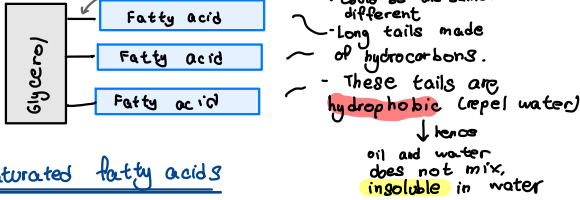 Glycerol
Fatty acid
Fatty acid
Fatty acid
different
-Long tails made
of hydrocarbons.
- These tails are
hydrophobic (repel water)
hence
oil and water
does not mix,
insoluble in water
fatty acids